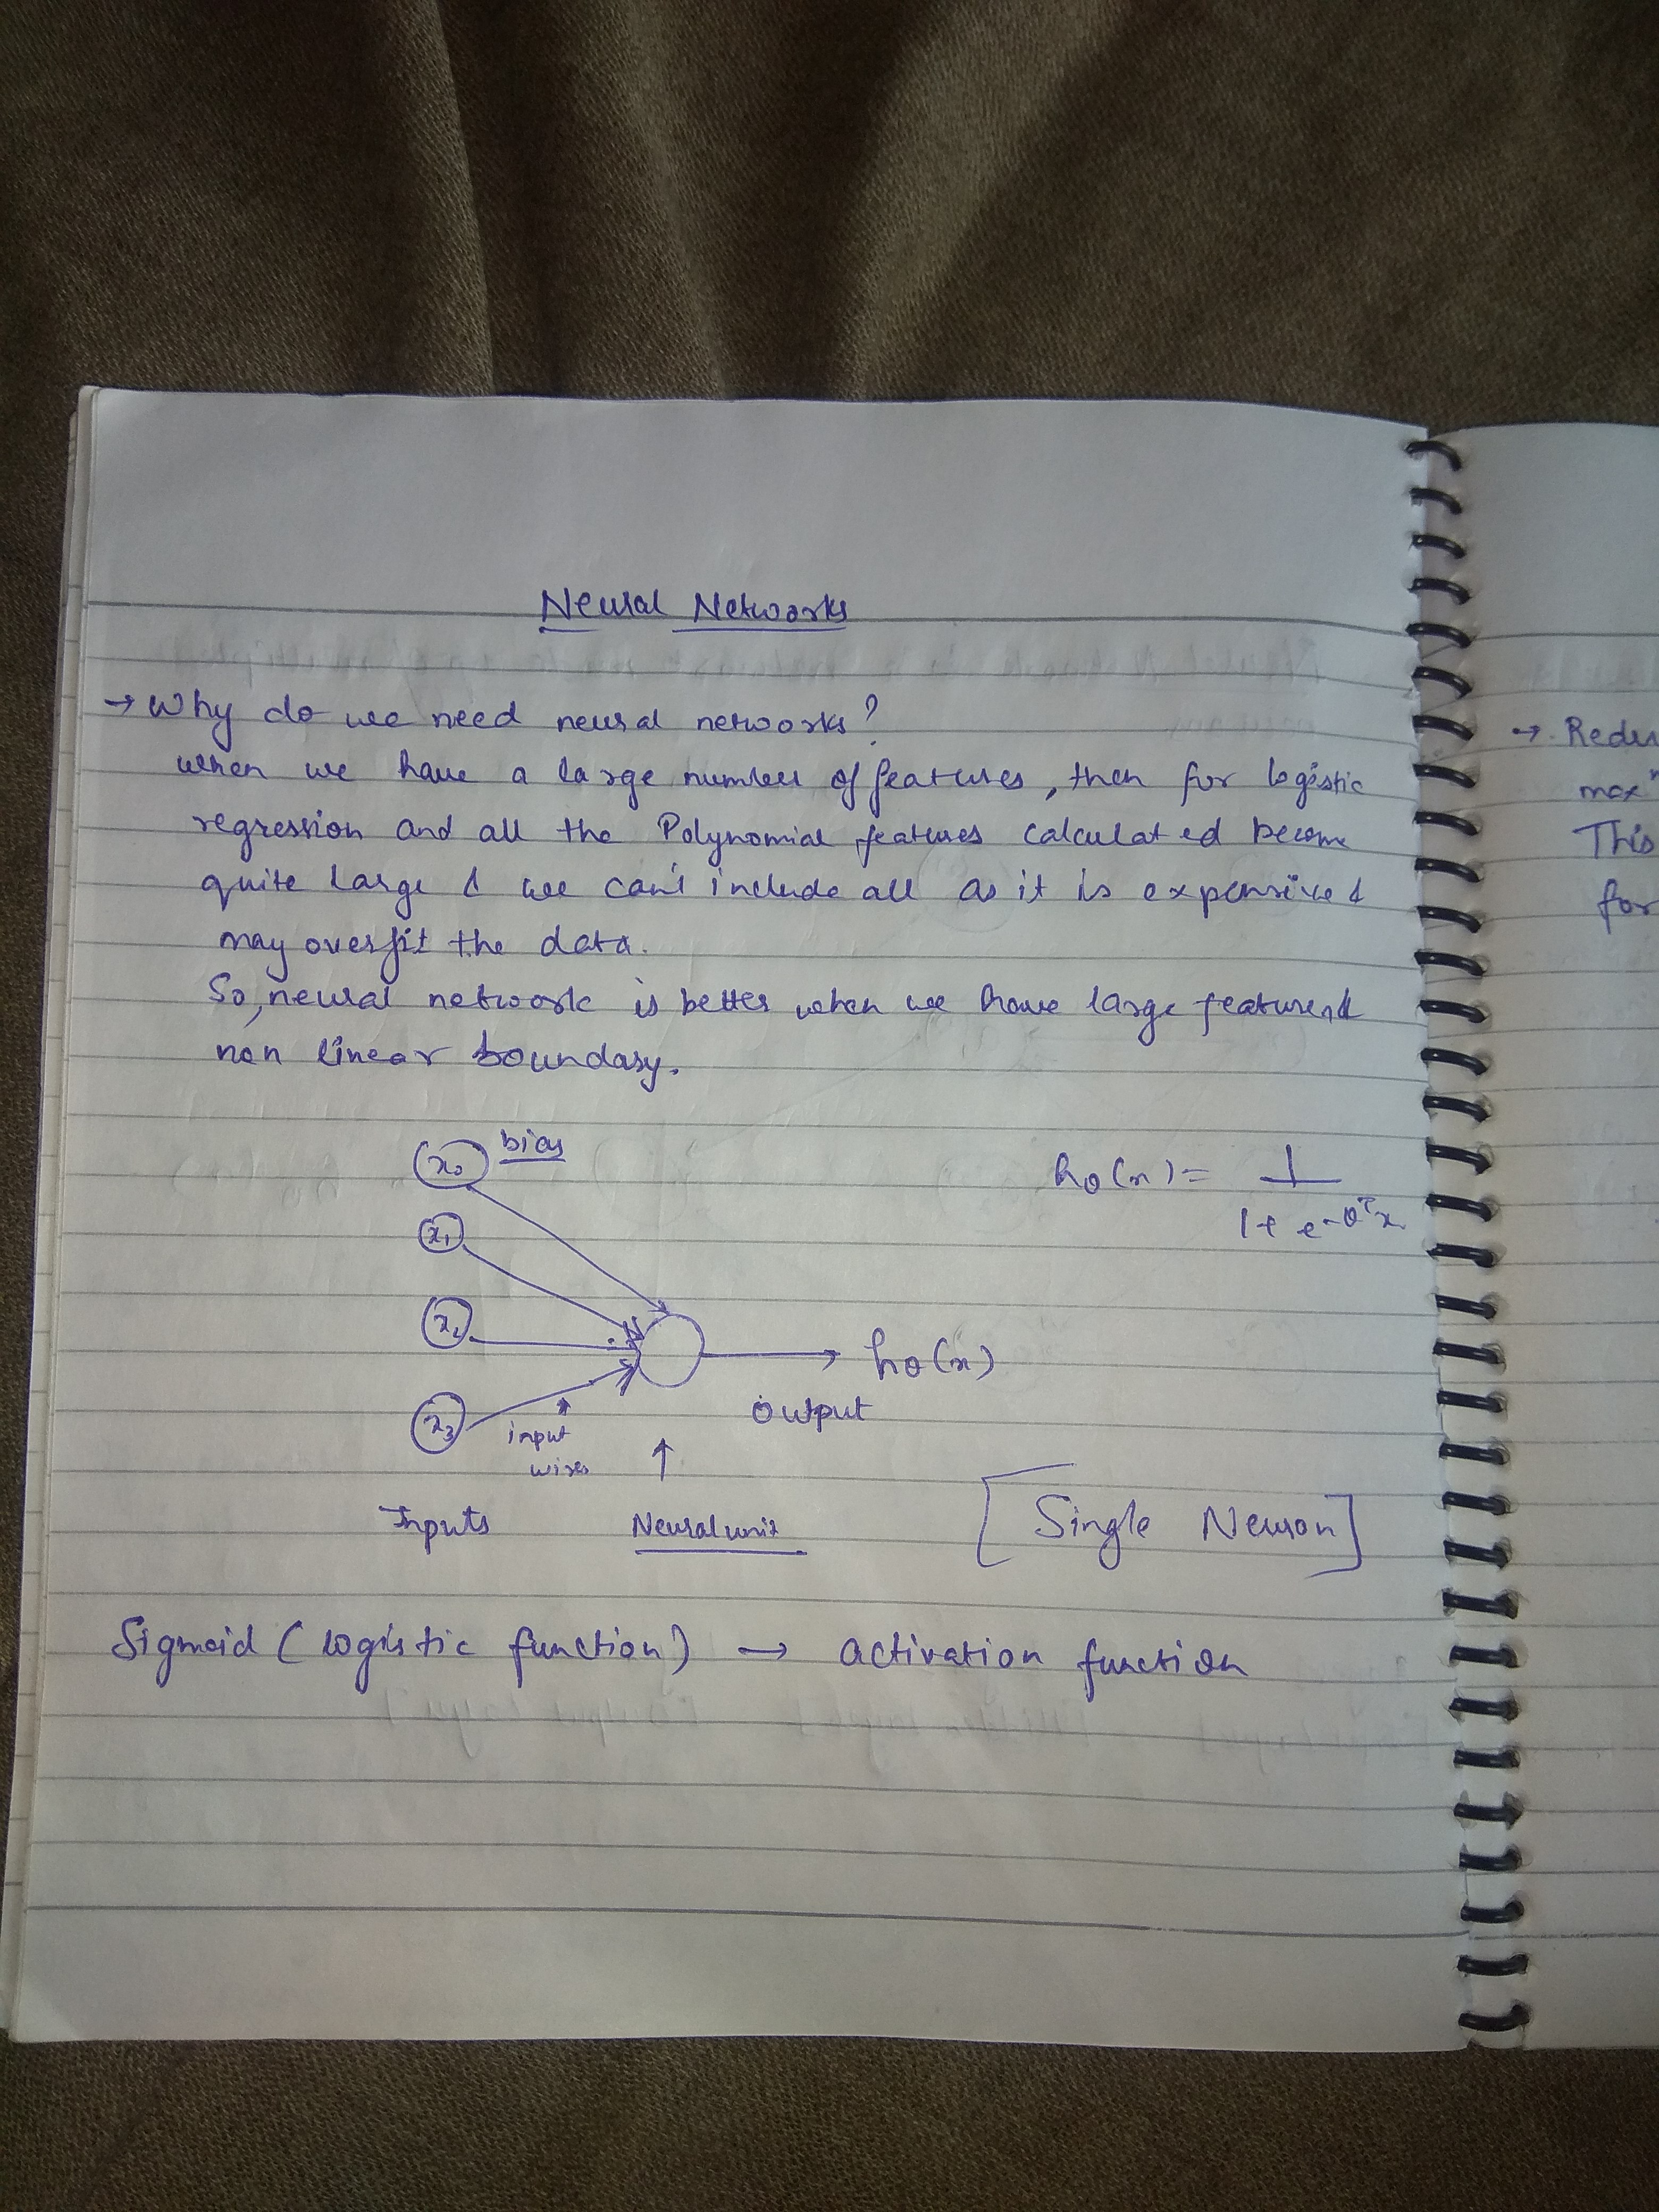 Neural Networks
→ Why do we need neural networks?
when we have a large number of features, then for logistic
regression and all the Polynomial features calculated become
quite large & we can't include all as it is expensive &
may overfit the data.
So, neural network is better when we have large feature &
non linear boundary.
x₀ bias
hθ(x) = 1 / 1 + e^-θᵀx
x₁
x₂
hθ(x)
x₃
output
input
wires
Inputs
Neural unit
[Single Neuron]
Sigmoid (logistic function) → activation function
→
max^m
This
for